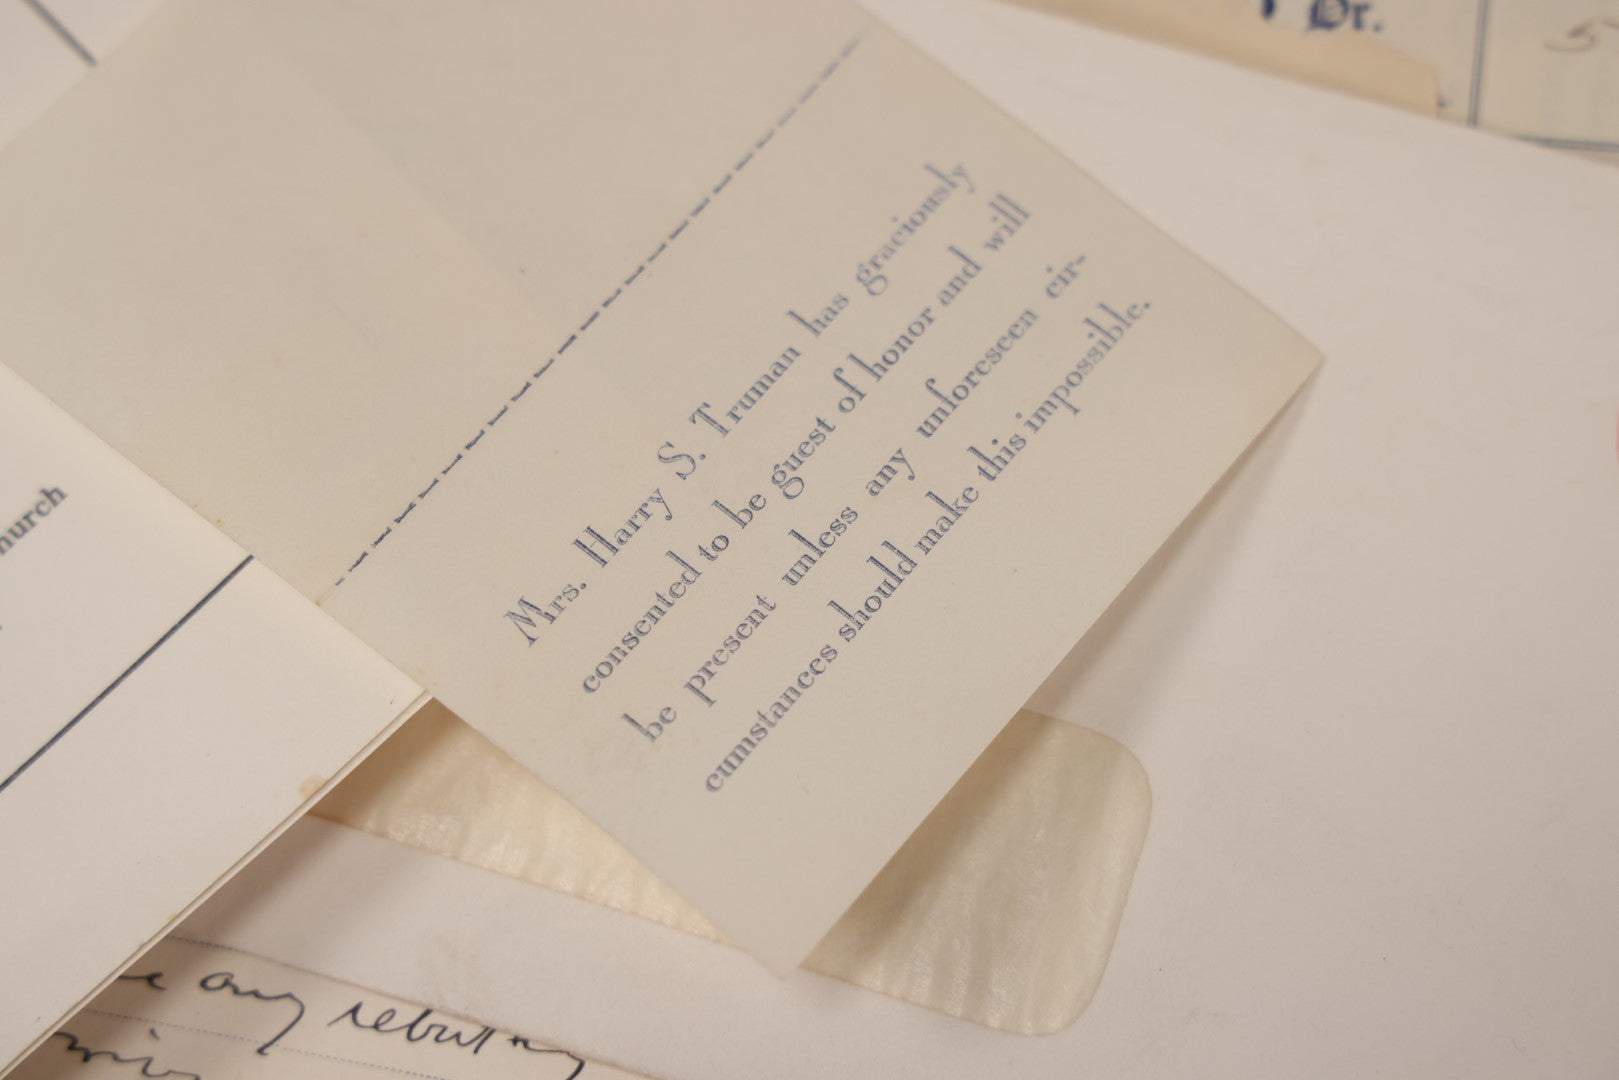 Dr.
5
Mrs. Harry S. Truman has graciously
consented to be guest of honor and will
be present unless any unforeseen cir-
cumstances should make this impossible.
hurch
any rebutt